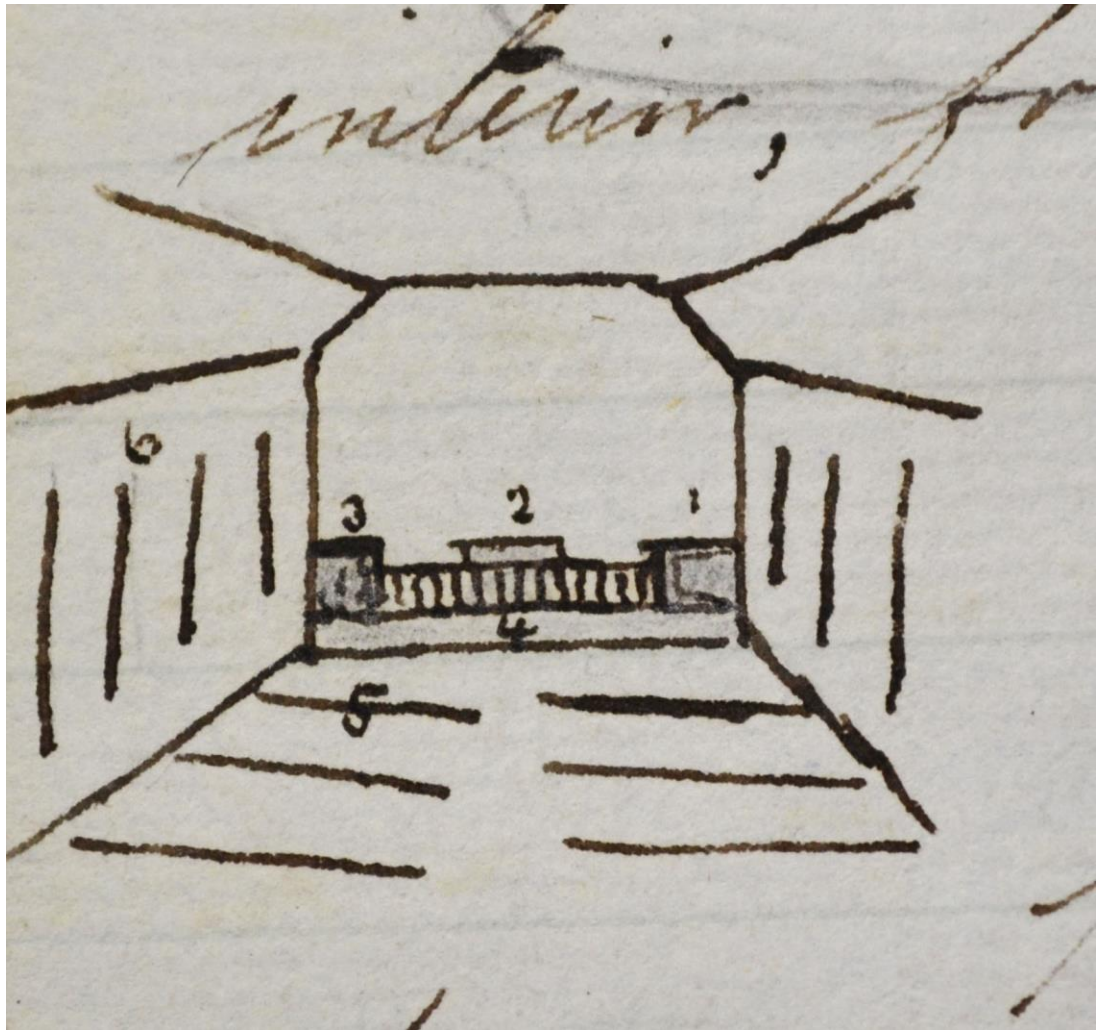 interior, fr
6
3 2 1
4
5